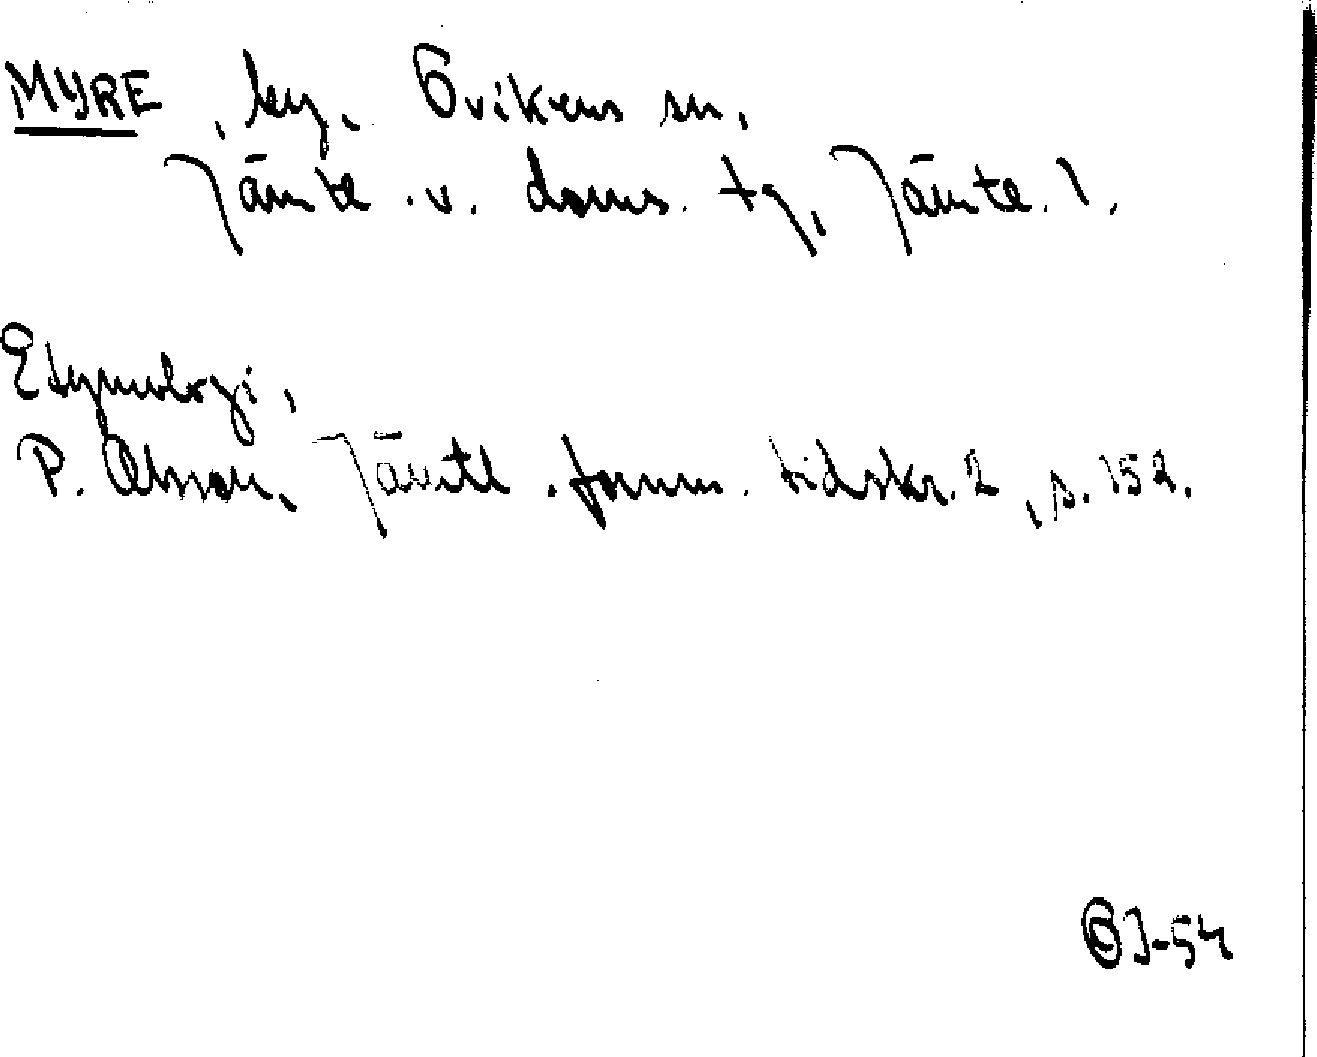 MYRE, by, Ovikens sn,
Jämtl. v. doms. tg, Jämtl. l.
Etymologi,
P. Olsson, Jämtl. fornm. tidskr. 2, s. 152.
J-54